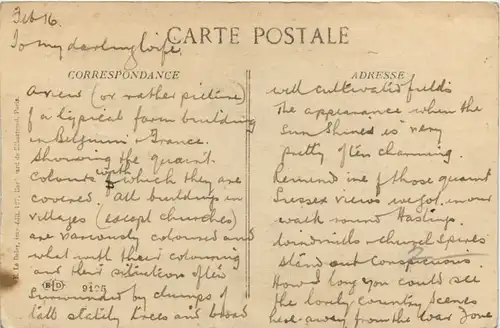 Feb 16.
To my darling wife.
CARTE POSTALE
CORRESPONDANCE
A view (or rather picture)
of a typical farm building
in Belgium & France.
Showing the quaint
colours with which they are
covered. All buildings in
villages (except churches)
are variously coloured and
what with their colouring
and their situation often
surrounded by clumps of
tall stately trees and broad
ED 9125
ADRESSE
well cultivated fields
The appearance when the
sun shines is very
pretty often charming.
Remind me of those quaint
Sussex views we got in our
walk round Hastings
windmills & church spires
stand out conspicuous.
How I long you could see
the lovely country scenes
here away from the war zone